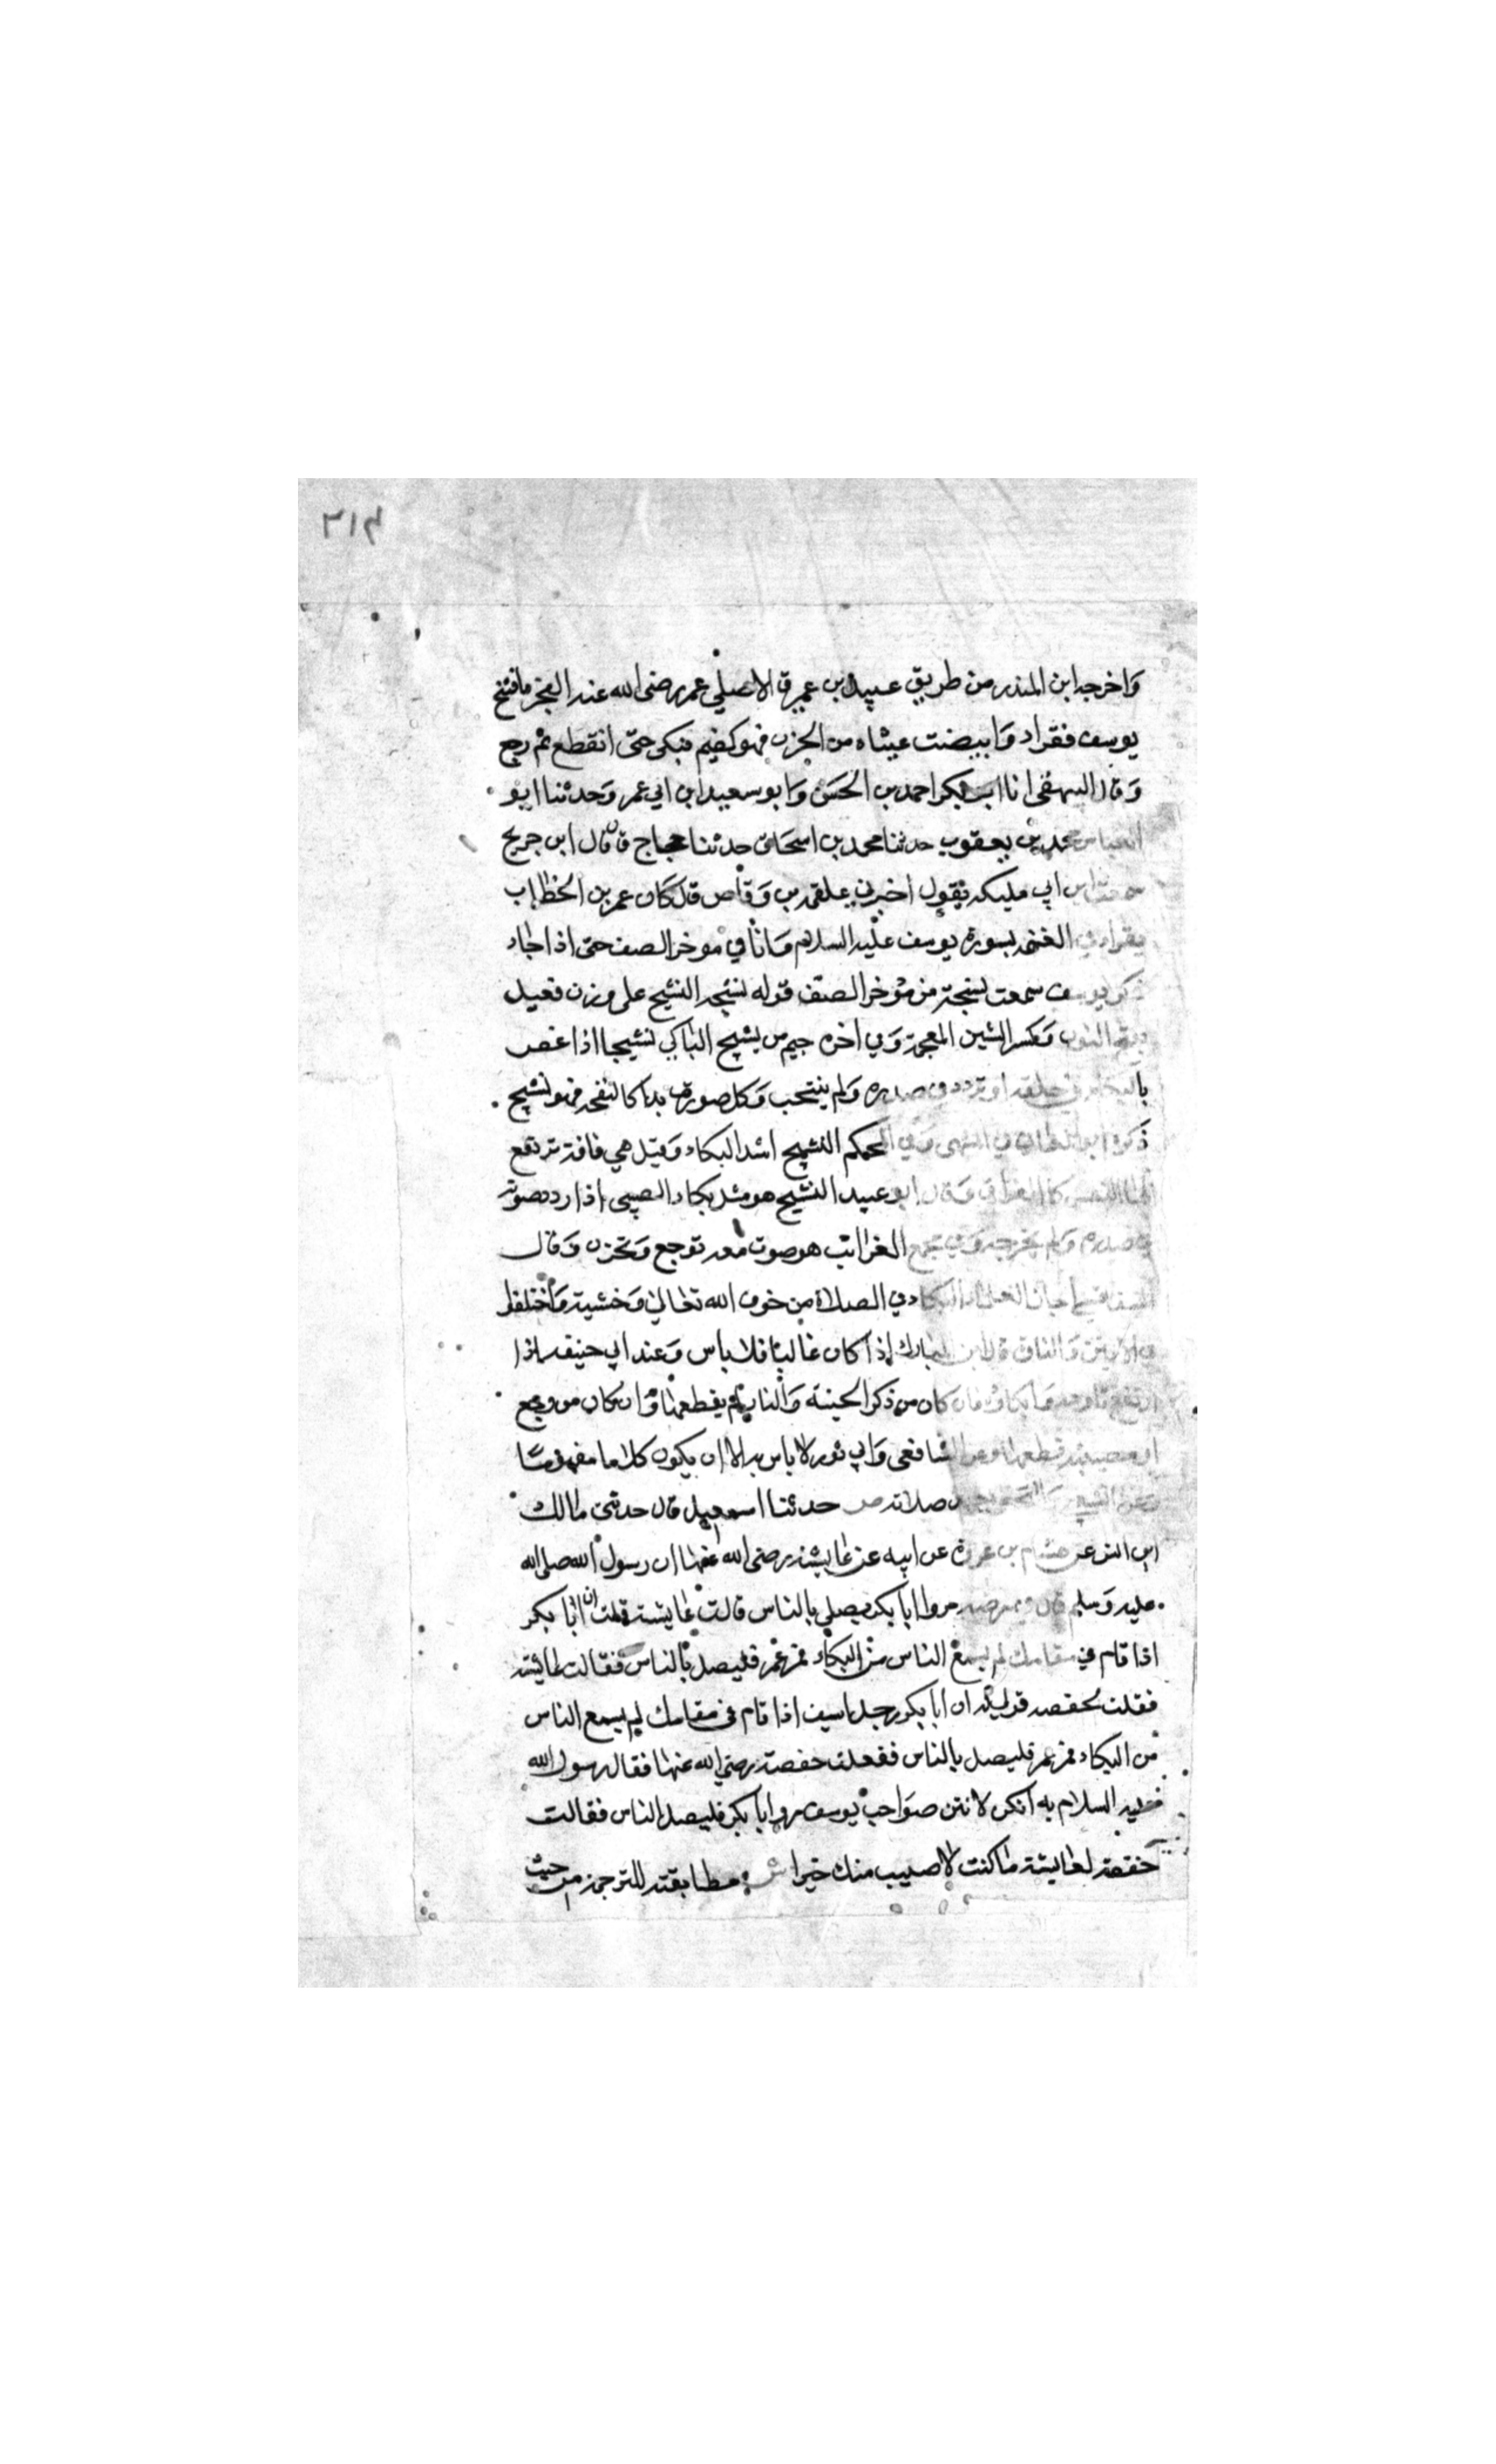 ٣١٤
واخرجه ابن المنذر من طريق عبيد بن عمير قال صلي عمر رضى الله عنه الفجر فافتتح
يوسف فقراء وابيضت عيناه من الحزن فهو كظيم فبكى حتى انقطع ثم رجع
وقال البيهقى انا ابو بكر احمد بن الحسن وابو سعيد ابن ابي عمر وحدثنا ابو
العباس محمد بن يعقوب حدثنا محمد بن اسحاق حدثنا حجاج قال قال ابن جريج
سمعت ابن ابي مليكه يقول اخبرني علقمه بن وقاص قال كان عمر بن الخطاب
يقراء في العتمه بسورة يوسف عليه السلام وانا في موخر الصف حتى اذا جاء
ذكر يوسف سمعت نشيجه من موخر الصف قوله نشجه النشيج على وزن فعيل
بفتح النون وكسر الشين المعجمة وفي اخره جيم من نشج الباكي نشيجا اذا غص
بالبكاء في حلقه او تردد في صدره ولم ينتحب وكل صوت بدا كالنفخه فهو نشيج
ذكره ابو المعالي في المنتهى وفي المحكم النشيج اشد البكاء وقيل هي فاقة ترتفع
لها النفس كالفواق وقال ابو عبيد النشيج هو مثل بكاء الصبي اذا ردد صوته
في صدره ولم يخرجه وفي مجمع الغرائب هو صوت معه توجع وتحزن وقال
السفاقسي اجاز العلماء البكاء في الصلاة من خوف الله تعالى وخشيته واختلفوا
في الانين والتاوه قال ابن المبارك اذا كان غالبا فلا باس وعند ابي حنيفه اذا
ارتفع تاوهه وبكاوه فان كان من ذكر الجنة والنار لم يقطعها وان كان من وجع
او مصيبة قطعها وعن الشافعي وابي ثور لا باس به الا ان يكون كلاما مفهوما
وعن الشعبي والنخعي يعيد صلاته ص حدثنا اسمعيل قال حدثنى مالك
ابن انس عن هشام بن عروة عن ابيه عن عايشة رضى الله عنها ان رسول الله صلى الله
عليه وسلم قال في مرضه مروا ابا بكر يصلي بالناس قالت عايشة قلت ان ابا بكر
اذا قام في مقامك لم يسمع الناس من البكاء فمر عمر فليصل بالناس فقالت عايشه
فقلت لحفصه قولي له ان ابا بكر رجل اسيف اذا قام فى مقامك لم يسمع الناس
من البكاء فمر عمر فليصل بالناس ففعلت حفصة رضي الله عنها فقال رسول الله
عليه السلام مه انكن لانتن صواحب يوسف مروا ابا بكر فليصل بالناس فقالت
حفصة لعايشة ما كنت لاصيب منك خيرا ش مطابقته للترجمة من حيث